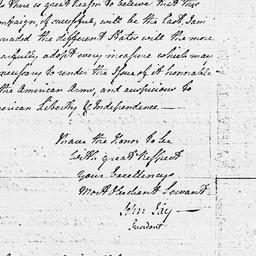 there is great Reason to believe that this
mpaign, if successful, will be the last I am
suaded the different States will the more
earfully adopt every measure which may
necessary to render the Issue of it honorable
the American Arms, and auspicious to
merican Liberty & Independence —
I have the Honor to be
With great Respect
Your Excellencys
Most Obedient Servant
John Jay —
President